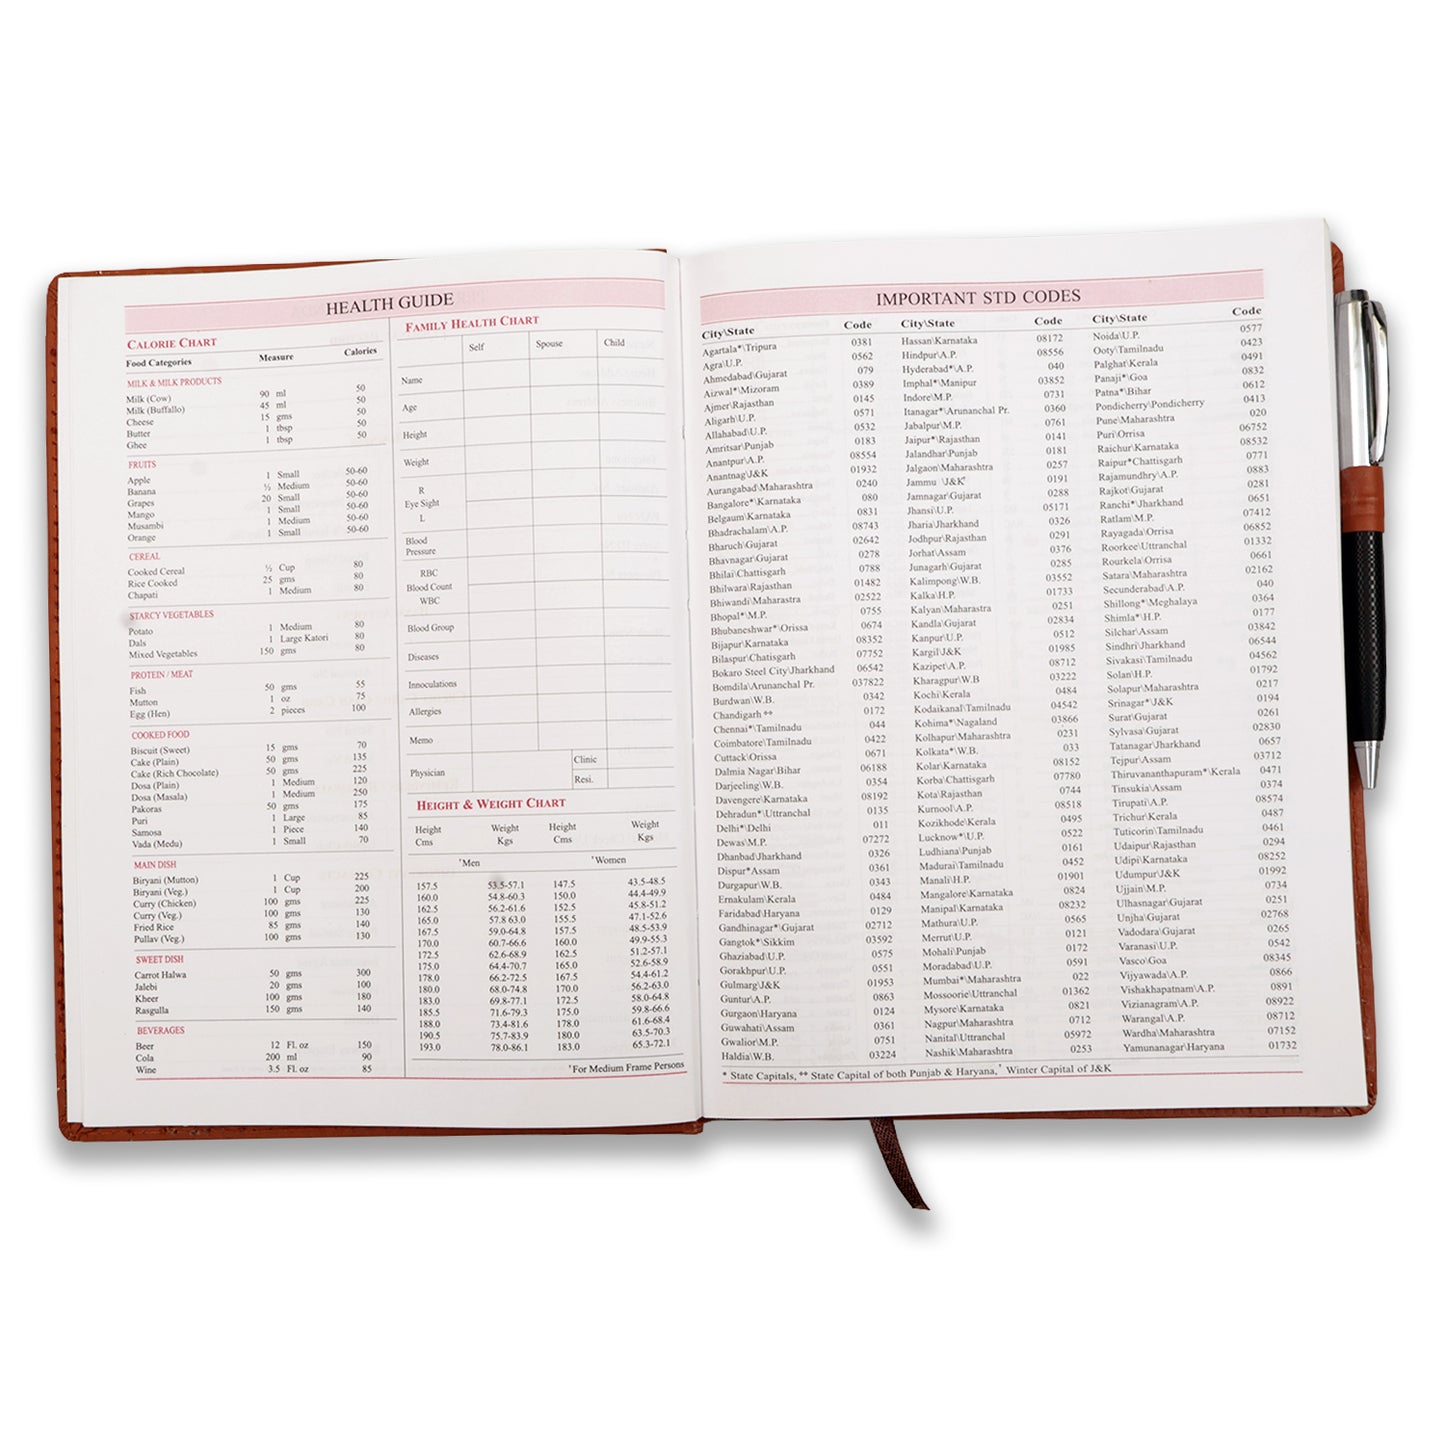 HEALTH GUIDE
CALORIE CHART
Food Categories Measure Calories
MILK & MILK PRODUCTS
Milk (Cow) 90 ml 50
Milk (Buffallo) 45 ml 50
Cheese 15 gms 50
Butter 1 tbsp 50
Ghee 1 tbsp 50
FRUITS
Apple 1 Small 50-60
Banana ½ Medium 50-60
Grapes 20 Small 50-60
Mango 1 Small 50-60
Musambi 1 Medium 50-60
Orange 1 Small 50-60
CEREAL
Cooked Cereal ½ Cup 80
Rice Cooked 25 gms 80
Chapati 1 Medium 80
STARCY VEGETABLES
Potato 1 Medium 80
Dals 1 Large Katori 80
Mixed Vegetables 150 gms 80
PROTEIN / MEAT
Fish 50 gms 55
Mutton 1 oz 75
Egg (Hen) 2 pieces 100
COOKED FOOD
Biscuit (Sweet) 15 gms 70
Cake (Plain) 50 gms 135
Cake (Rich Chocolate) 50 gms 225
Dosa (Plain) 1 Medium 120
Dosa (Masala) 1 Medium 250
Pakoras 50 gms 175
Puri 1 Large 85
Samosa 1 Piece 140
Vada (Medu) 1 Small 70
MAIN DISH
Biryani (Mutton) 1 Cup 225
Biryani (Veg.) 1 Cup 200
Curry (Chicken) 100 gms 225
Curry (Veg.) 100 gms 130
Fried Rice 85 gms 140
Pullav (Veg.) 100 gms 130
SWEET DISH
Carrot Halwa 50 gms 300
Jalebi 20 gms 100
Kheer 100 gms 180
Rasgulla 150 gms 140
BEVERAGES
Beer 12 Fl. oz 150
Cola 200 ml 90
Wine 3.5 Fl. oz 85
FAMILY HEALTH CHART
Self Spouse Child
Name
Age
Height
Weight
R
Eye Sight
L
Blood
Pressure
RBC
Blood Count
WBC
Blood Group
Diseases
Innoculations
Allergies
Memo
Physician Clinic
Resi.
HEIGHT & WEIGHT CHART
Height Weight Height Weight
Cms Kgs Cms Kgs
*Men *Women
157.5 53.5-57.1 147.5 43.5-48.5
160.0 54.8-60.3 150.0 44.4-49.9
162.5 56.2-61.6 152.5 45.8-51.2
165.0 57.8 63.0 155.5 47.1-52.6
167.5 59.0-64.8 157.5 48.5-53.9
170.0 60.7-66.6 160.0 49.9-55.3
172.5 62.6-68.9 162.5 51.2-57.1
175.0 64.4-70.7 165.0 52.6-58.9
178.0 66.2-72.5 167.5 54.4-61.2
180.0 68.0-74.8 170.0 56.2-63.0
183.0 69.8-77.1 172.5 58.0-64.8
185.5 71.6-79.3 175.0 59.8-66.6
188.0 73.4-81.6 178.0 61.6-68.4
190.5 75.7-83.9 180.0 63.5-70.3
193.0 78.0-86.1 183.0 65.3-72.1
*For Medium Frame Persons
IMPORTANT STD CODES
City\State Code
Agartala*\Tripura 0381
Agra\U.P. 0562
Ahmedabad\Gujarat 079
Aizwal*\Mizoram 0389
Ajmer\Rajasthan 0145
Aligarh\U.P. 0571
Allahabad\U.P. 0532
Amritsar\Punjab 0183
Anantpur\A.P. 08554
Anantnag\J&K 01932
Aurangabad\Maharashtra 0240
Bangalore*\Karnataka 080
Belgaum\Karnataka 0831
Bhadrachalam\A.P. 08743
Bharuch\Gujarat 02642
Bhavnagar\Gujarat 0278
Bhilai\Chattisgarh 0788
Bhilwara\Rajasthan 01482
Bhiwandi\Maharastra 02522
Bhopal*\M.P. 0755
Bhubaneshwar*\Orissa 0674
Bijapur\Karnataka 08352
Bilaspur\Chatisgarh 07752
Bokaro Steel City\Jharkhand 06542
Bomdila\Arunanchal Pr. 037822
Burdwan\W.B. 0342
Chandigarh ** 0172
Chennai*\Tamilnadu 044
Coimbatore\Tamilnadu 0422
Cuttack\Orissa 0671
Dalmia Nagar\Bihar 06188
Darjeeling\W.B. 0354
Davengere\Karnataka 08192
Dehradun*\Uttranchal 0135
Delhi*\Delhi 011
Dewas\M.P. 07272
Dhanbad\Jharkhand 0326
Dispur*\Assam 0361
Durgapur\W.B. 0343
Ernakulam\Kerala 0484
Faridabad\Haryana 0129
Gandhinagar*\Gujarat 02712
Gangtok*\Sikkim 03592
Ghaziabad\U.P. 0575
Gorakhpur\U.P. 0551
Gulmarg\J&K 01953
Guntur\A.P. 0863
Gurgaon\Haryana 0124
Guwahati\Assam 0361
Gwalior\M.P. 0751
Haldia\W.B. 03224
City\State Code
Hassan\Karnataka 08172
Hindpur\A.P. 08556
Hyderabad*\A.P. 040
Imphal*\Manipur 03852
Indore\M.P. 0731
Itanagar*\Arunanchal Pr. 0360
Jabalpur\M.P. 0761
Jaipur*\Rajasthan 0141
Jalandhar\Punjab 0181
Jalgaon\Maharashtra 0257
Jammu \J&K* 0191
Jamnagar\Gujarat 0288
Jhansi\U.P. 05171
Jharia\Jharkhand 0326
Jodhpur\Rajasthan 0291
Jorhat\Assam 0376
Junagarh\Gujarat 0285
Kalimpong\W.B. 03552
Kalka\H.P. 01733
Kalyan\Maharastra 0251
Kandla\Gujarat 02834
Kanpur\U.P. 0512
Kargil\J&K 01985
Kazipet\A.P. 08712
Kharagpur\W.B 03222
Kochi\Kerala 0484
Kodaikanal\Tamilnadu 04542
Kohima*\Nagaland 03866
Kolhapur\Maharashtra 0231
Kolkata*\W.B. 033
Kolar\Karnataka 08152
Korba\Chattisgarh 07780
Kota\Rajasthan 0744
Kurnool\A.P. 08518
Kozikhode\Kerala 0495
Lucknow*\U.P. 0522
Ludhiana\Punjab 0161
Madurai\Tamilnadu 0452
Manali\H.P. 01901
Mangalore\Karnataka 0824
Manipal\Karnataka 08232
Mathura\U.P. 0565
Merrut\U.P. 0121
Mohali\Punjab 0172
Moradabad\U.P. 0591
Mumbai*\Maharashtra 022
Mossoorie\Uttranchal 01362
Mysore\Karnataka 0821
Nagpur\Maharashtra 0712
Nanital\Uttranchal 05972
Nashik\Maharashtra 0253
City\State Code
Noida\U.P. 0577
Ooty\Tamilnadu 0423
Palghat\Kerala 0491
Panaji*\Goa 0832
Patna*\Bihar 0612
Pondicherry\Pondicherry 0413
Pune\Maharashtra 020
Puri\Orissa 06752
Raichur\Karnataka 08532
Raipur*\Chattisgarh 0771
Rajamundhry\A.P. 0883
Rajkot\Gujarat 0281
Ranchi*\Jharkhand 0651
Ratlam\M.P. 07412
Rayagada\Orissa 06852
Roorkee\Uttranchal 01332
Rourkela\Orissa 0661
Satara\Maharashtra 02162
Secunderabad\A.P. 040
Shillong*\Meghalaya 0364
Shimla*\H.P. 0177
Silchar\Assam 03842
Sindhri\Jharkhand 06544
Sivakasi\Tamilnadu 04562
Solan\H.P. 01792
Solapur\Maharashtra 0217
Srinagar*\J&K 0194
Surat\Gujarat 0261
Sylvasa\Gujarat 02830
Tatanagar\Jharkhand 0657
Tejpur\Assam 03712
Thiruvananthapuram*\Kerala 0471
Tinsukia\Assam 0374
Tirupati\A.P. 08574
Trichur\Kerala 0487
Tuticorin\Tamilnadu 0461
Udaipur\Rajasthan 0294
Udipi\Karnataka 08252
Udumpur\J&K 01992
Ujjain\M.P. 0734
Ulhasnagar\Gujarat 0251
Unjha\Gujarat 02768
Vadodara\Gujarat 0265
Varanasi\U.P. 0542
Vasco\Goa 08345
Vijyawada\A.P. 0866
Vishakhapatnam\A.P. 0891
Vizianagram\A.P. 08922
Warangal\A.P. 08712
Wardha\Maharashtra 07152
Yamunanagar\Haryana 01732
* State Capitals, ** State Capital of both Punjab & Haryana,* Winter Capital of J&K